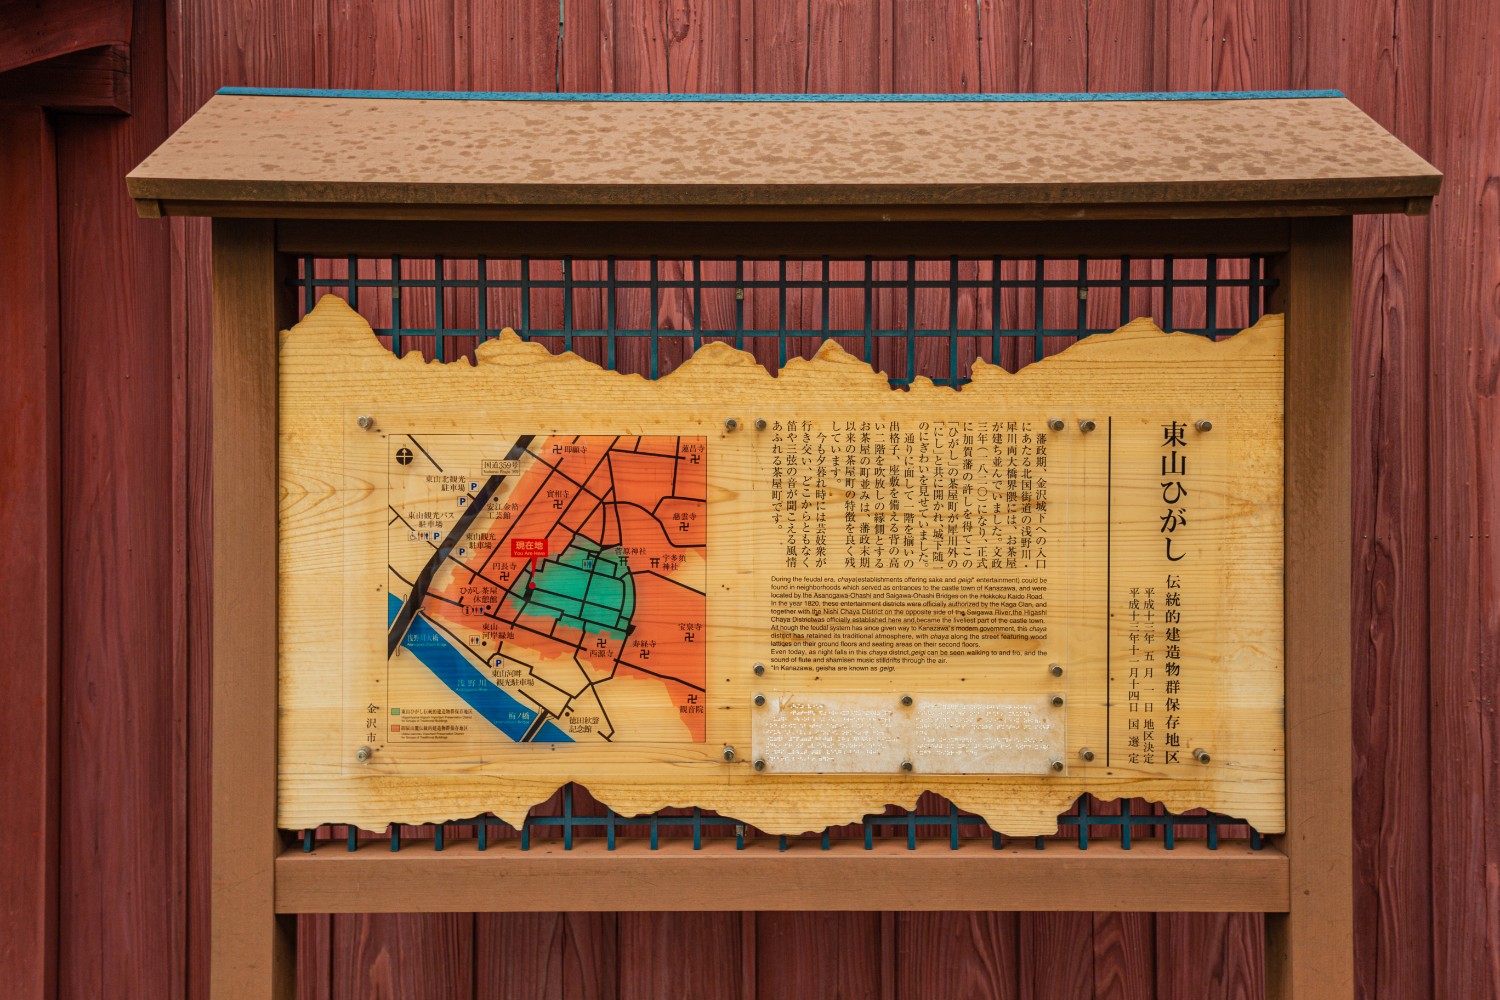 東山ひがし
伝統的建造物群保存地区
平成十三年 五月 一日 地区決定
平成十三年十一月十四日 国 選 定
藩政期、金沢城下への入口
にあたる北国街道の浅野川・
犀川両大橋界隈には、お茶屋
が建ち並んでいました。文政
三年(一八二〇)になり、正式
に加賀藩の許しを得てこの
「ひがし」の茶屋町が犀川外の
「にし」と共に開かれ、城下随一
のにぎわいを見せていました。
通りに面して一階を揃いの
出格子、座敷を備える背の高
い二階を吹放しの縁側とする
お茶屋の町並みは、藩政末期
以来の茶屋町の特徴を良く残
しています。
今も夕暮れ時には芸妓衆が
行き交い、どこからともなく
笛や三弦の音が聞こえる風情
あふれる茶屋町です。
During the feudal era, chaya(establishments offering sake and geigi* entertainment) could be
found in neighborhoods which served as entrances to the castle town of Kanazawa, and were
located by the Asanogawa-Ohashi and Saigawa-Ohashi Bridges on the Hokkoku Kaido Road.
In the year 1820, these entertainment districts were officially authorized by the Kaga Clan, and
together with the Nishi Chaya District on the opposite side of the Saigawa River,the Higashi
Chaya Districtwas officially established here and became the liveliest part of the castle town.
Alt hough the feudal system has since given way to Kanazawa's modern government, this chaya
district has retained its traditional atmosphere, with chaya along the street featuring wood
lattices on their ground floors and seating areas on their second floors.
Even today, as night falls in this chaya district,geigi can be seen walking to and fro, and the
sound of flute and shamisen music stilldrifts through the air.
*In Kanazawa, geisha are known as geigi.
国道359号
卍即願寺
蓮昌寺
卍
東山北観光
駐車場
P
P
實相寺
卍
安江金箔
工芸館
東山観光バス
駐車場
P
慈雲寺
卍
東山観光
駐車場
P
現在地
You Are Here
菅原神社
宇多須
神社
円長寺
卍
ひがし茶屋
休憩館
東山
河岸緑地
宝泉寺
卍
卍
西源寺
寿経寺
卍
浅野川大橋
P
東山河畔
観光駐車場
浅野川
梅ノ橋
徳田秋聲
記念館
卍
観音院
東山ひがし伝統的建造物群保存地区
卯辰山麓伝統的建造物群保存地区
金沢市